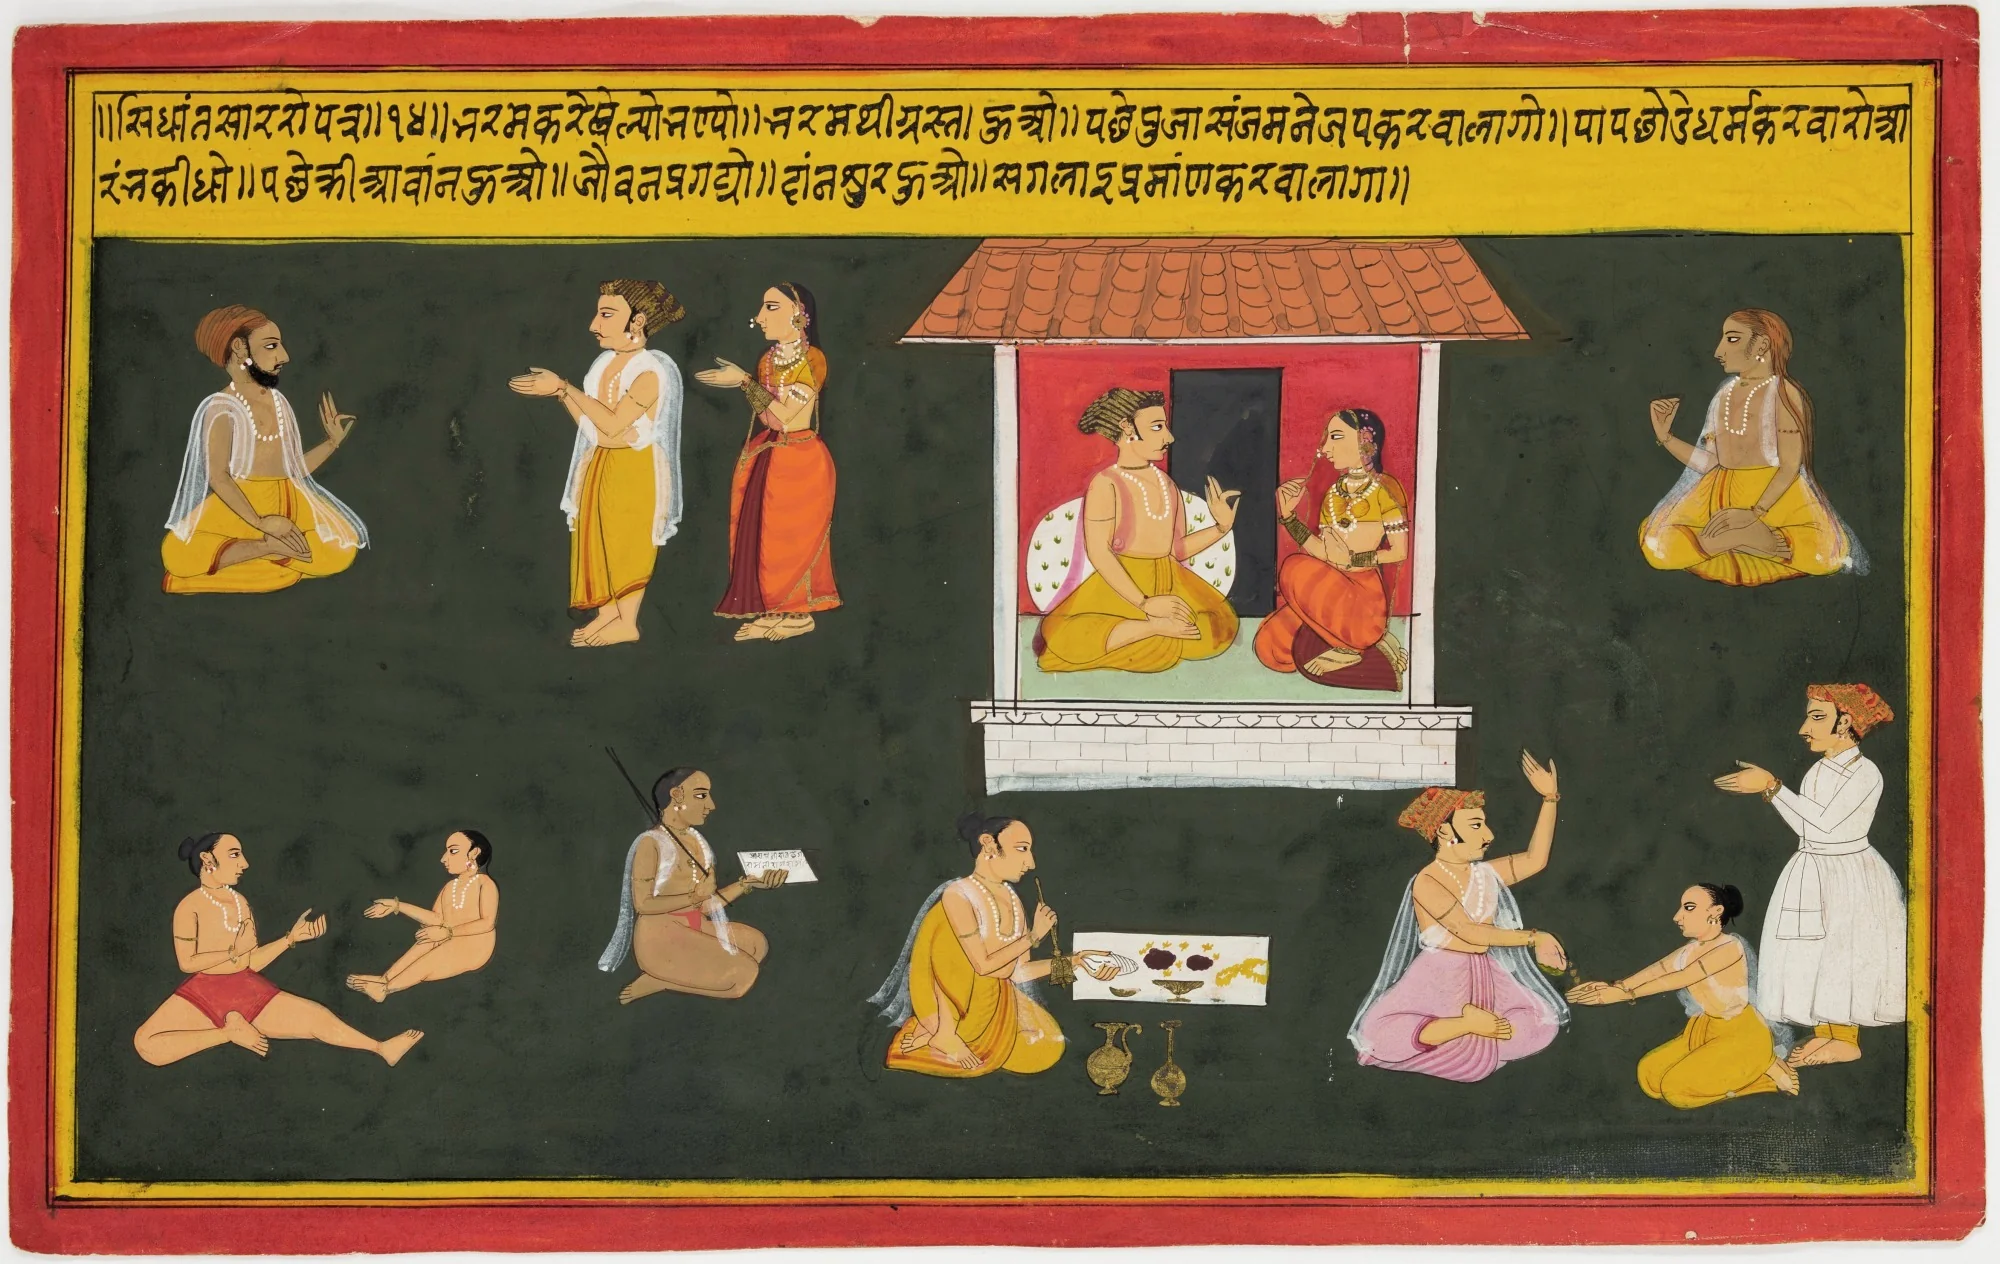 ॥सिधांतसाररो पत्र॥१४॥नरमकरैषेल्योनल्पो॥नरमथीग्रस्ता ऊओ॥पछेपुजा संजमनेजपकरवालागो॥पापछोडेधर्मकरवारोआ
रंनकीधो॥पछेकीआवांनऊओ॥जौवनप्रगट्यो॥दांनश्रुरऊओ॥सगलाइप्रमांणकरवालागा॥